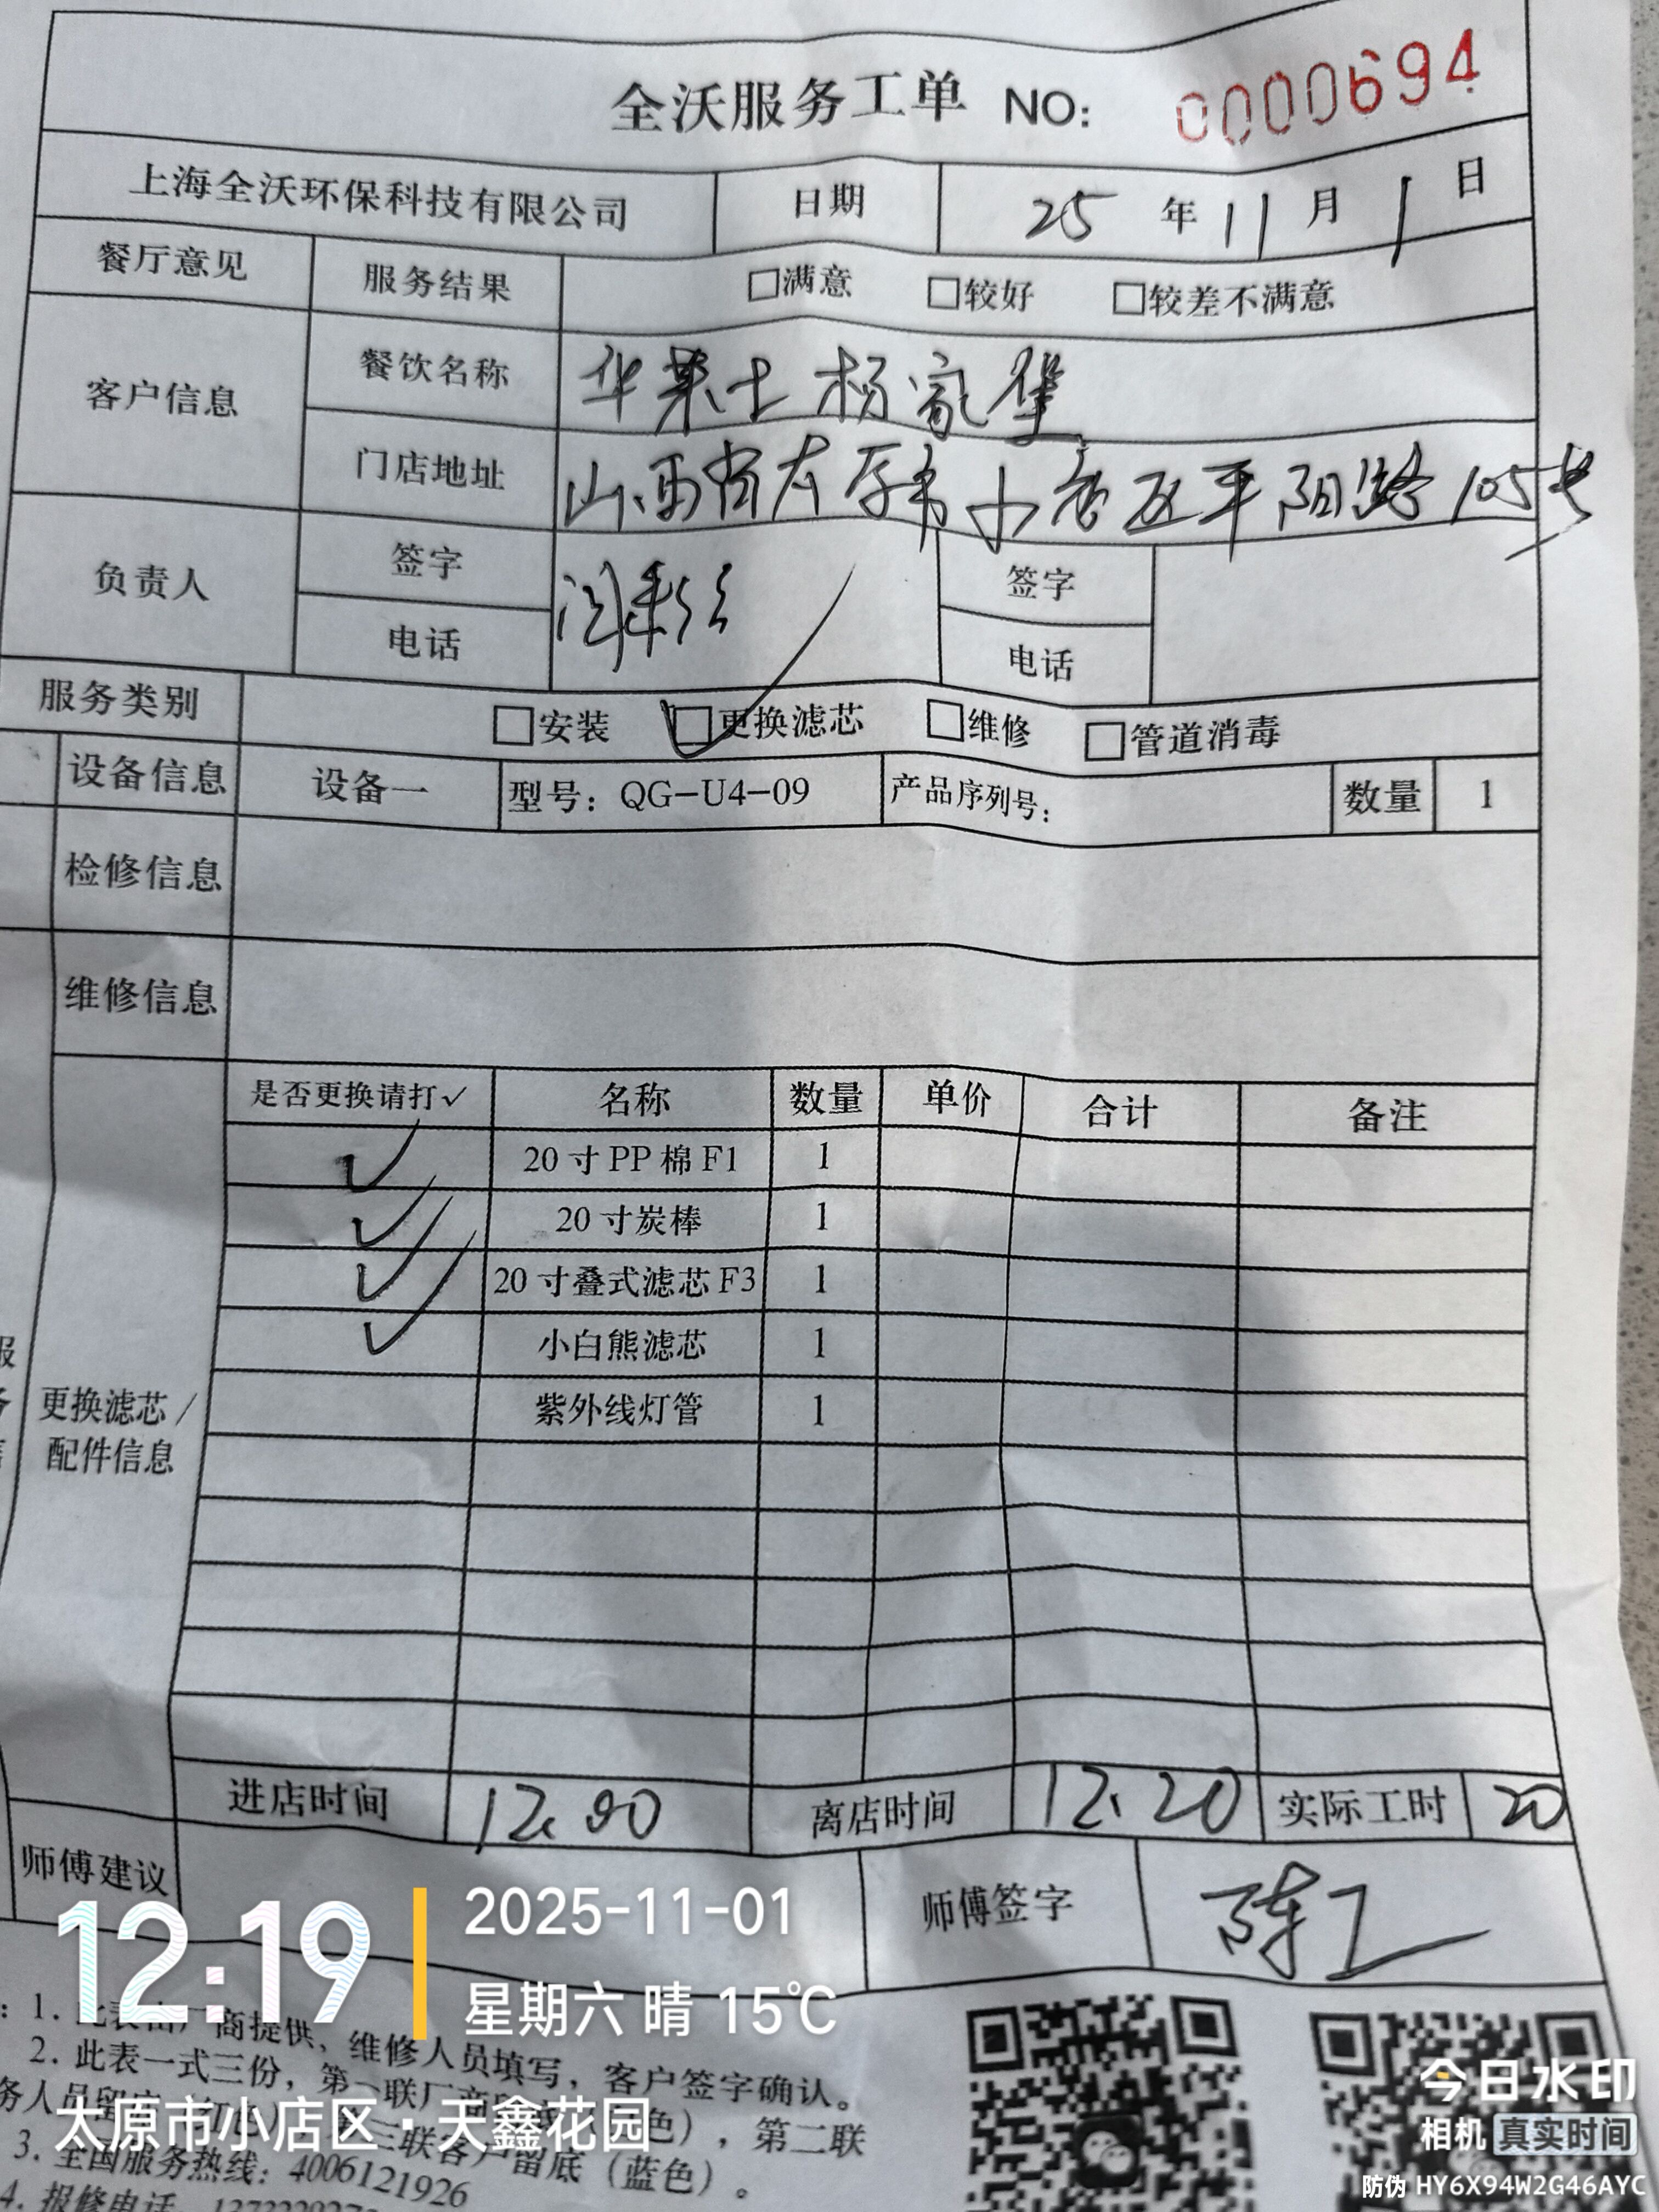 全沃服务工单 NO: 0000694
上海全沃环保科技有限公司 日期 25 年 11 月 1 日
餐厅意见 服务结果 □满意 □较好 □较差不满意
客户信息 餐饮名称 华莱士杨家堡
门店地址 山西省太原市小店区平阳路105号
负责人 签字 签字
电话 电话
服务类别 □安装 ☑更换滤芯 □维修 □管道消毒
设备信息 设备一 型号：QG-U4-09 产品序列号： 数量 1
检修信息
维修信息
是否更换请打✓ 名称 数量 单价 合计 备注
✓ 20寸PP棉F1 1
✓ 20寸炭棒 1
✓ 20寸叠式滤芯F3 1
✓ 小白熊滤芯 1
紫外线灯管 1
更换滤芯/
配件信息
进店时间 12:00 离店时间 12:20 实际工时 20
师傅建议 师傅签字 陈工
12:19
2025-11-01
星期六 晴 15℃
太原市小店区·天鑫花园
：1. 此表由厂商提供，维修人员填写，客户签字确认。
2. 此表一式三份，第一联厂商 色），第二联
务人员留 三联客户留底（蓝色）。
3. 全国服务热线：4006121926
4. 报修电话
今日水印
相机 真实时间
防伪 HY6X94W2G46AYC